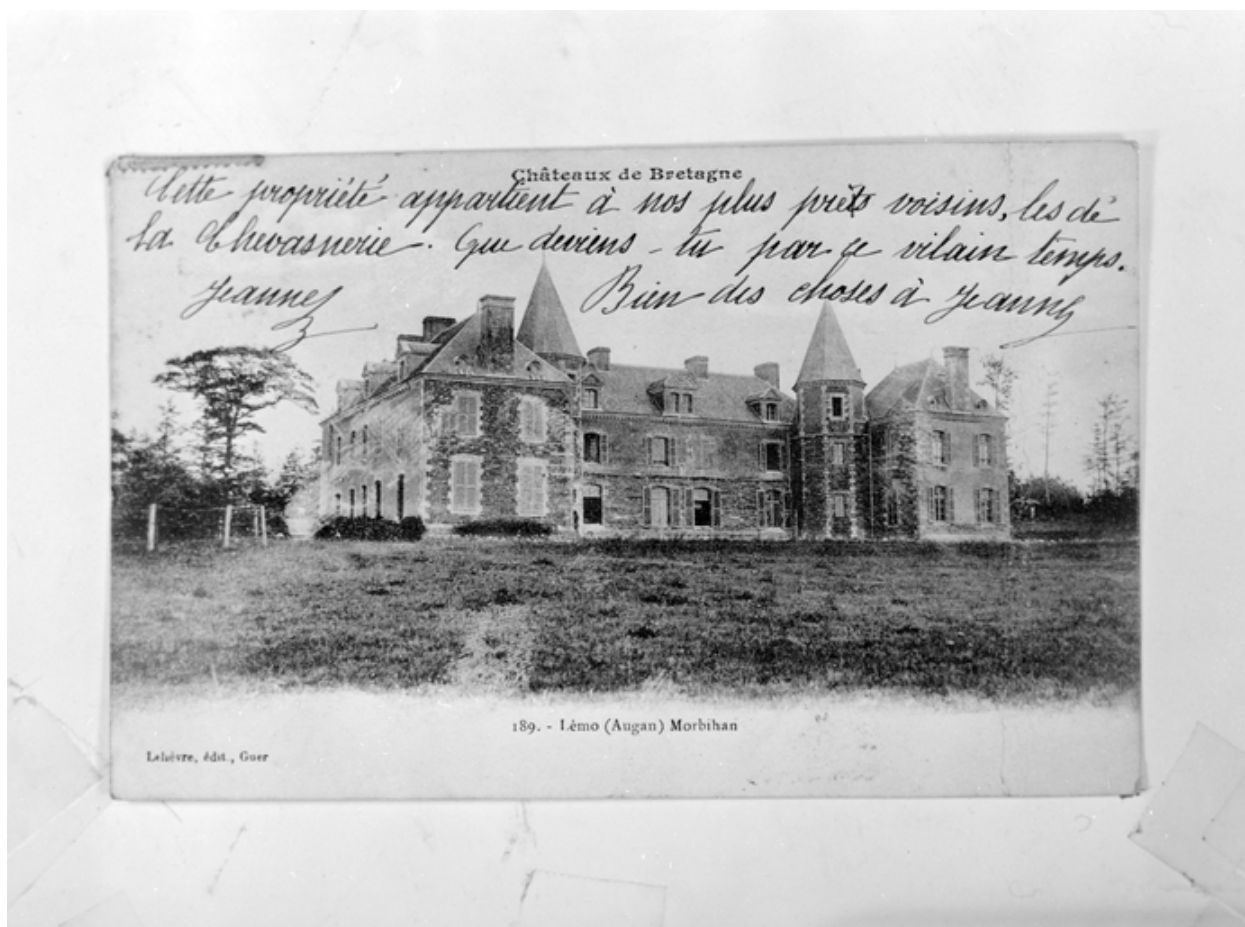 Châteaux de Bretagne
Cette propriété appartient à nos plus prêts voisins, les de
la Chevasnerie. Que deviens-tu par ce vilain temps.
Jeanne Bien des choses à Jeanne
189. - Lémo (Augan) Morbihan
Lelièvre, édit., Guer